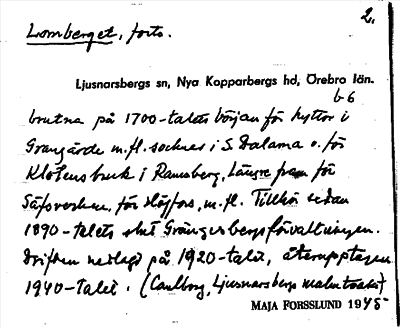 Lomberget, forts.
2.
Ljusnarsbergs sn, Nya Kopparbergs hd, Örebro län.
b6
brutna på 1700-talets början för hyttor i
Grangärde m.fl. socknar i S. Dalarna o. för
Klotens bruk i Ramsberg, längre fram för
Säfsverken, för Högfors, m.fl. Tillhör sedan
1890-talets slut Grängesbergsförvaltningen.
Driften nedlagd på 1920-talet, återupptagen
1940-talet. (Carlborg, Ljusnarsbergs malmtrakt)
MAJA FORSSLUND 1945